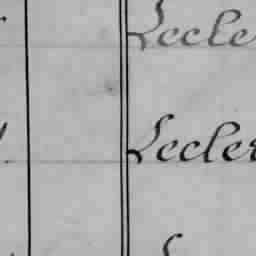 Lecle
Lecler